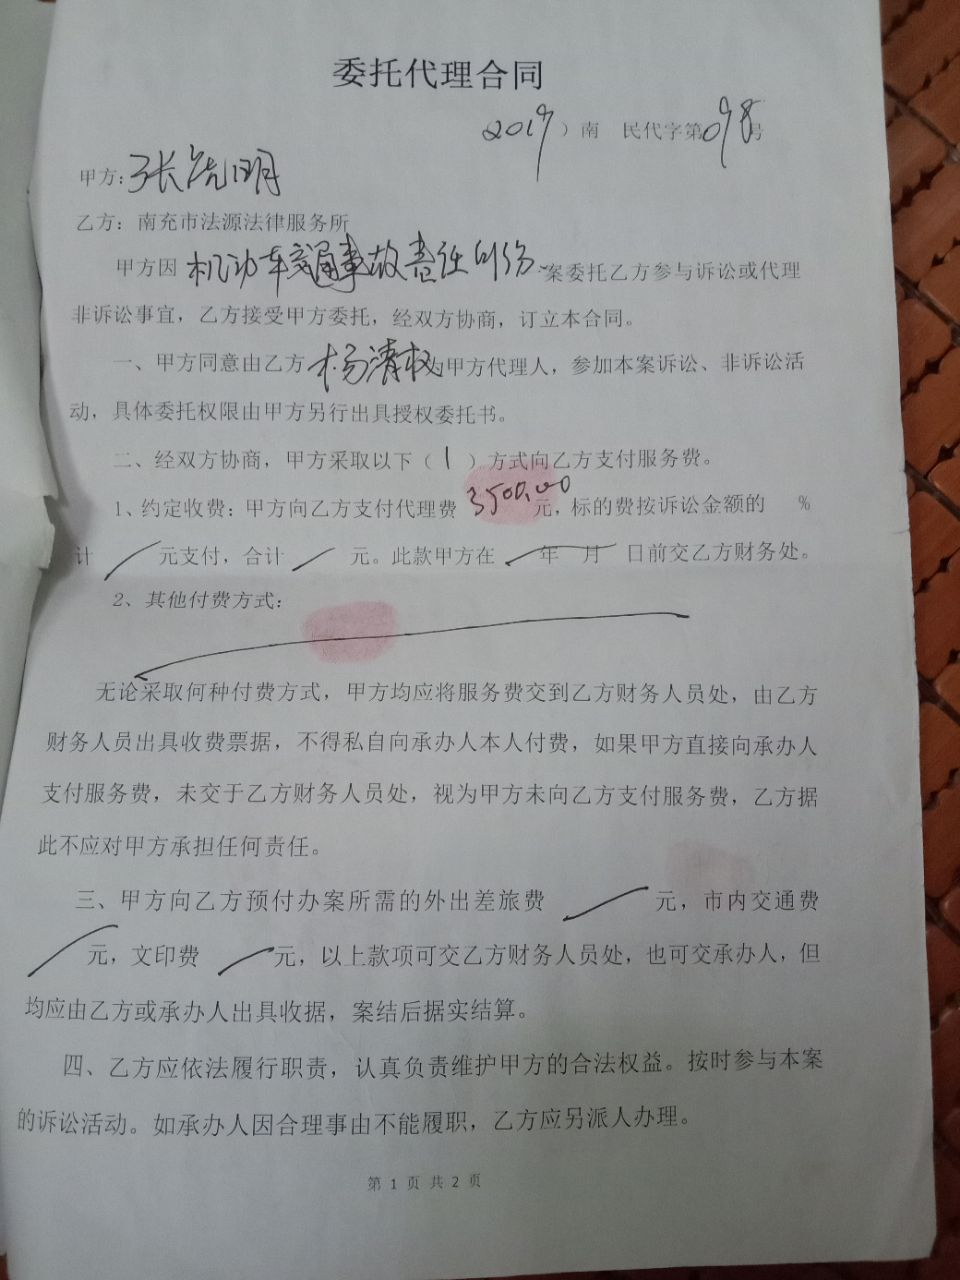 委托代理合同
2019）南 民代字第098号
甲方：张虎明
乙方：南充市法源法律服务所
甲方因 机动车交通事故责任纠纷 案委托乙方参与诉讼或代理
非诉讼事宜，乙方接受甲方委托，经双方协商，订立本合同。
一、甲方同意由乙方 杨清权 为甲方代理人，参加本案诉讼、非诉讼活
动，具体委托权限由甲方另行出具授权委托书。
二、经双方协商，甲方采取以下（ 1 ）方式向乙方支付服务费。
1、约定收费：甲方向乙方支付代理费 3500.00 元，标的费按诉讼金额的 %
计 元支付，合计 元。此款甲方在 年 月 日前交乙方财务处。
2、其他付费方式：
无论采取何种付费方式，甲方均应将服务费交到乙方财务人员处，由乙方
财务人员出具收费票据，不得私自向承办人本人付费，如果甲方直接向承办人
支付服务费，未交于乙方财务人员处，视为甲方未向乙方支付服务费，乙方据
此不应对甲方承担任何责任。
三、甲方向乙方预付办案所需的外出差旅费 元，市内交通费
元，文印费 元，以上款项可交乙方财务人员处，也可交承办人，但
均应由乙方或承办人出具收据，案结后据实结算。
四、乙方应依法履行职责，认真负责维护甲方的合法权益。按时参与本案
的诉讼活动。如承办人因合理事由不能履职，乙方应另派人办理。
第 1 页 共 2 页